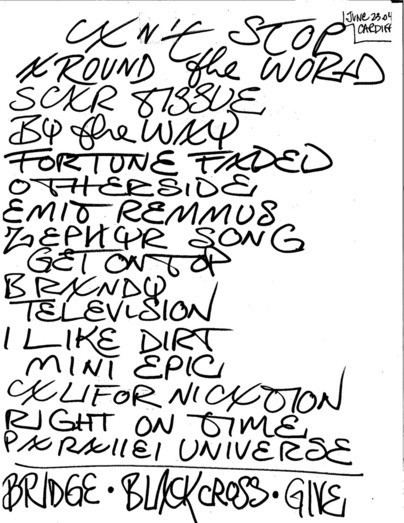 CAN'T STOP
JUNE 23 04
CARDIFF
AROUND the WORLD
SCAR TISSUE
BY the WAY
FORTUNE FADED
OTHERSIDE
EMIT REMMUS
ZEPHYR SONG
GET ON TOP
BRANDY
TELEVISION
I LIKE DIRT
MINI EPIC
CALIFORNICATION
RIGHT ON TIME
PARALLEL UNIVERSE
BRIDGE · BLACK CROSS · GIVE